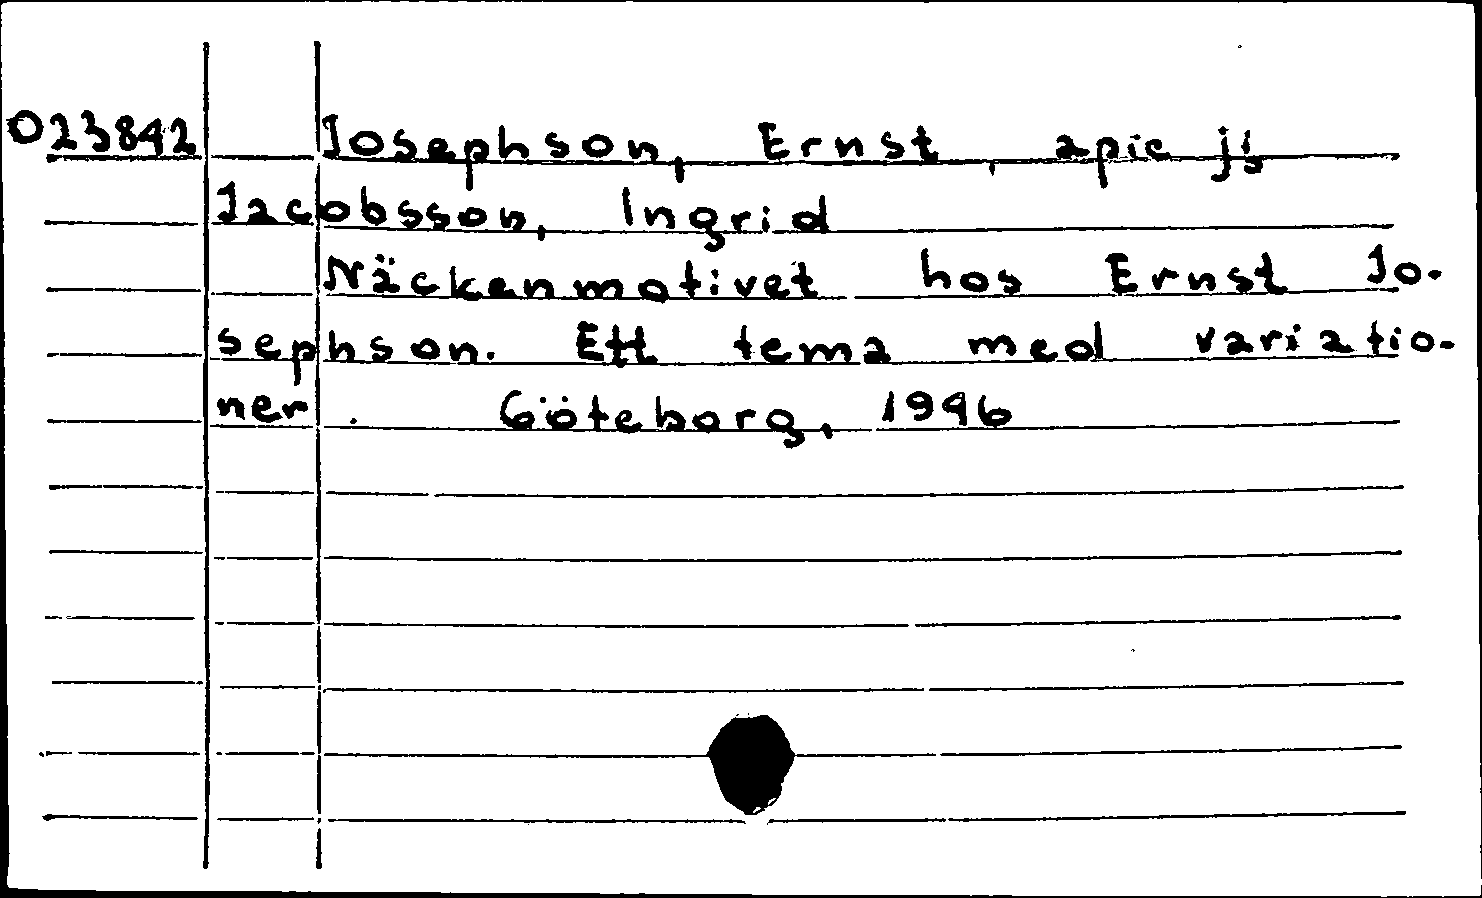 023842 Josephson, Ernst, apic js
Jacobsson, Ingrid
Näckenmotivet hos Ernst Jo-
sephson. Ett tema med variatio-
ner. Göteborg, 1946